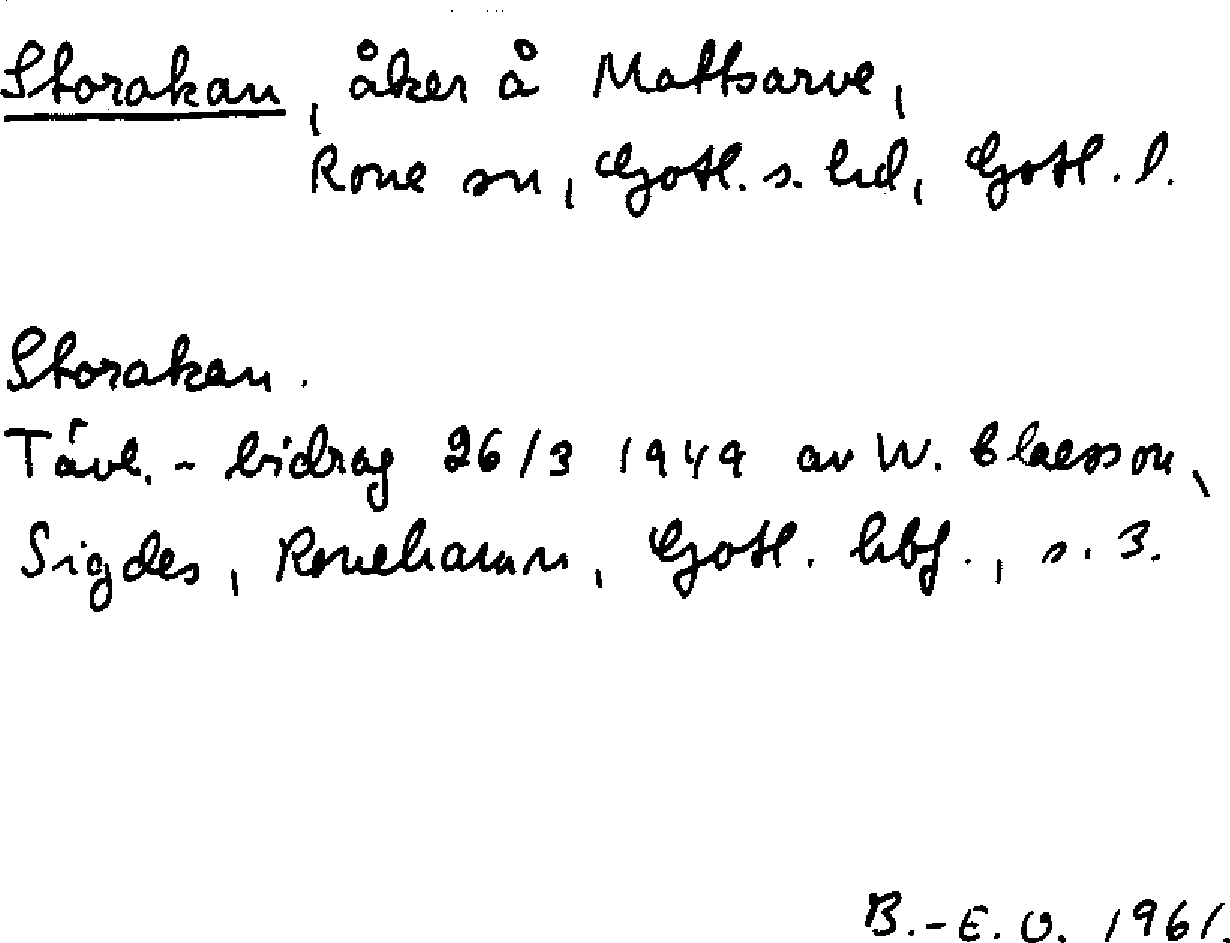 Storakan, åker å Mattsarve,
Rone sn, Gotl. s. hd, Gotl. l.
Storakan.
Tävl.-bidrag 26/3 1949 av W. Claesson,
Sigdes, Ronehamn, Gotl. hbf., s. 3.
B.-E. O. 1961.